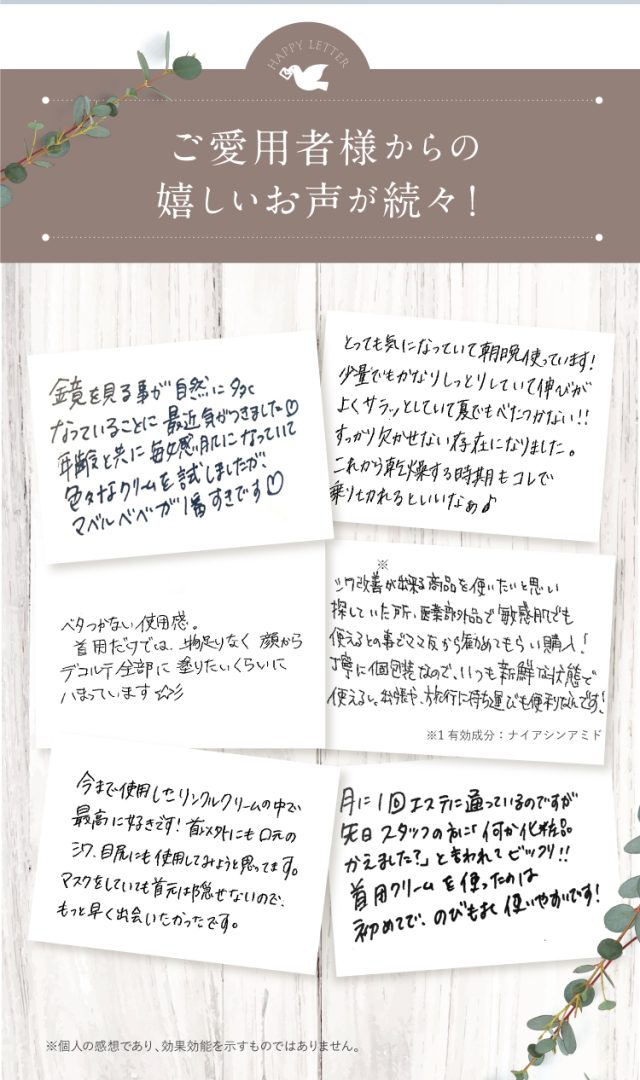 HAPPY LETTER
ご愛用者様からの
嬉しいお声が続々！
鏡を見る事が自然に多く
なっていることに最近気がつきました♡
年齢と共に敏感肌になっていて
色々なクリームを試しましたが、
マベルべべが1番すきです♡
とっても気になっていて朝晩使っています！
少量でもかなりしっとりしていて伸びが
よくサラッとしていて夏でもべたつかない！！
すっかり欠かせない存在になりました。
これから乾燥する時期もコレで
乗り切れるといいなぁ♪
ベタつかない使用感。
首用だけでは、物足りなく顔から
デコルテ全部に塗りたいくらいに
ハまっています☆彡
※
シワ改善が出来る商品を使いたいと思い
探していた所、医薬部外品で敏感肌でも
使えるとの事でママ友から勧めてもらい購入！
丁寧に個包装なので、いつも新鮮な状態で
使えるし、出張や、旅行に持ち運びも便利なんです！
※1 有効成分：ナイアシンアミド
今まで使用したリンクルクリームの中で
最高に好きです！首以外にも口元の
シワ、目尻にも使用してみようと思ってます。
マスクをしていても首元は隠せないので、
もっと早く出会いたかったです。
月に1回エステに通っているのですが
先日スタッフの方に「何か化粧品
かえました？」と言われてビックリ！！
首用クリームを使ったのは
初めてで、のびもよく使いやすいです！
※個人の感想であり、効果効能を示すものではありません。